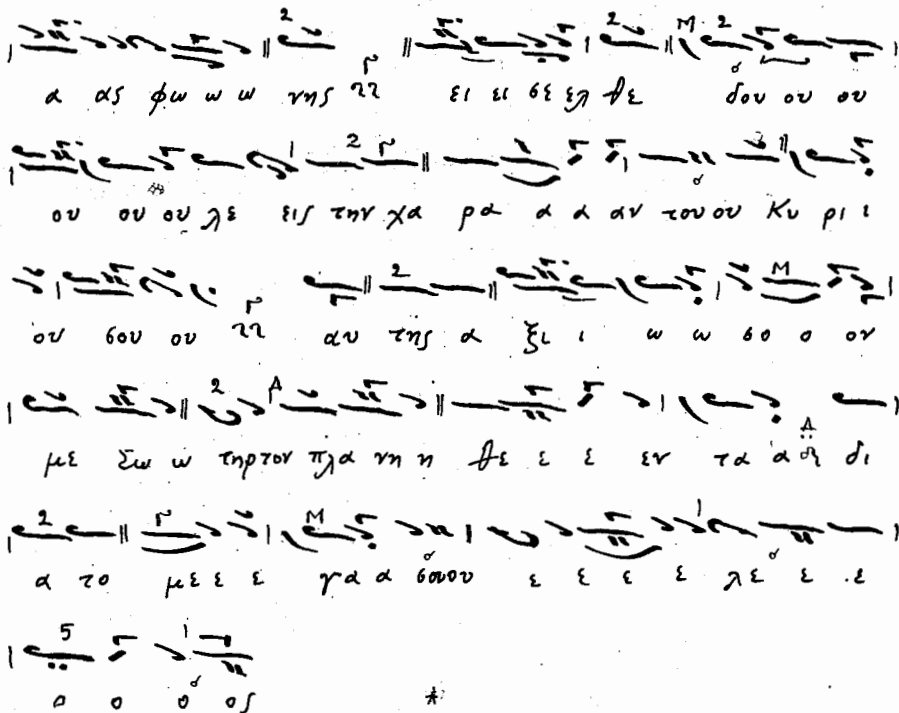 α ας φω ω ω νης ει ει σε ελ θε δου ου ου
ου ου ου λε εις την χα ρα α α αν του ου Κυ ρι ι
ου σου ου αυ της α ξι ι ω ω σο ο ον
με Σω ω τηρ τον πλα νη η θε ε ε εν τα α δι
α το με ε ε γα α α σου ου ε ε ε ε λε ε ε
ο ο ο ος